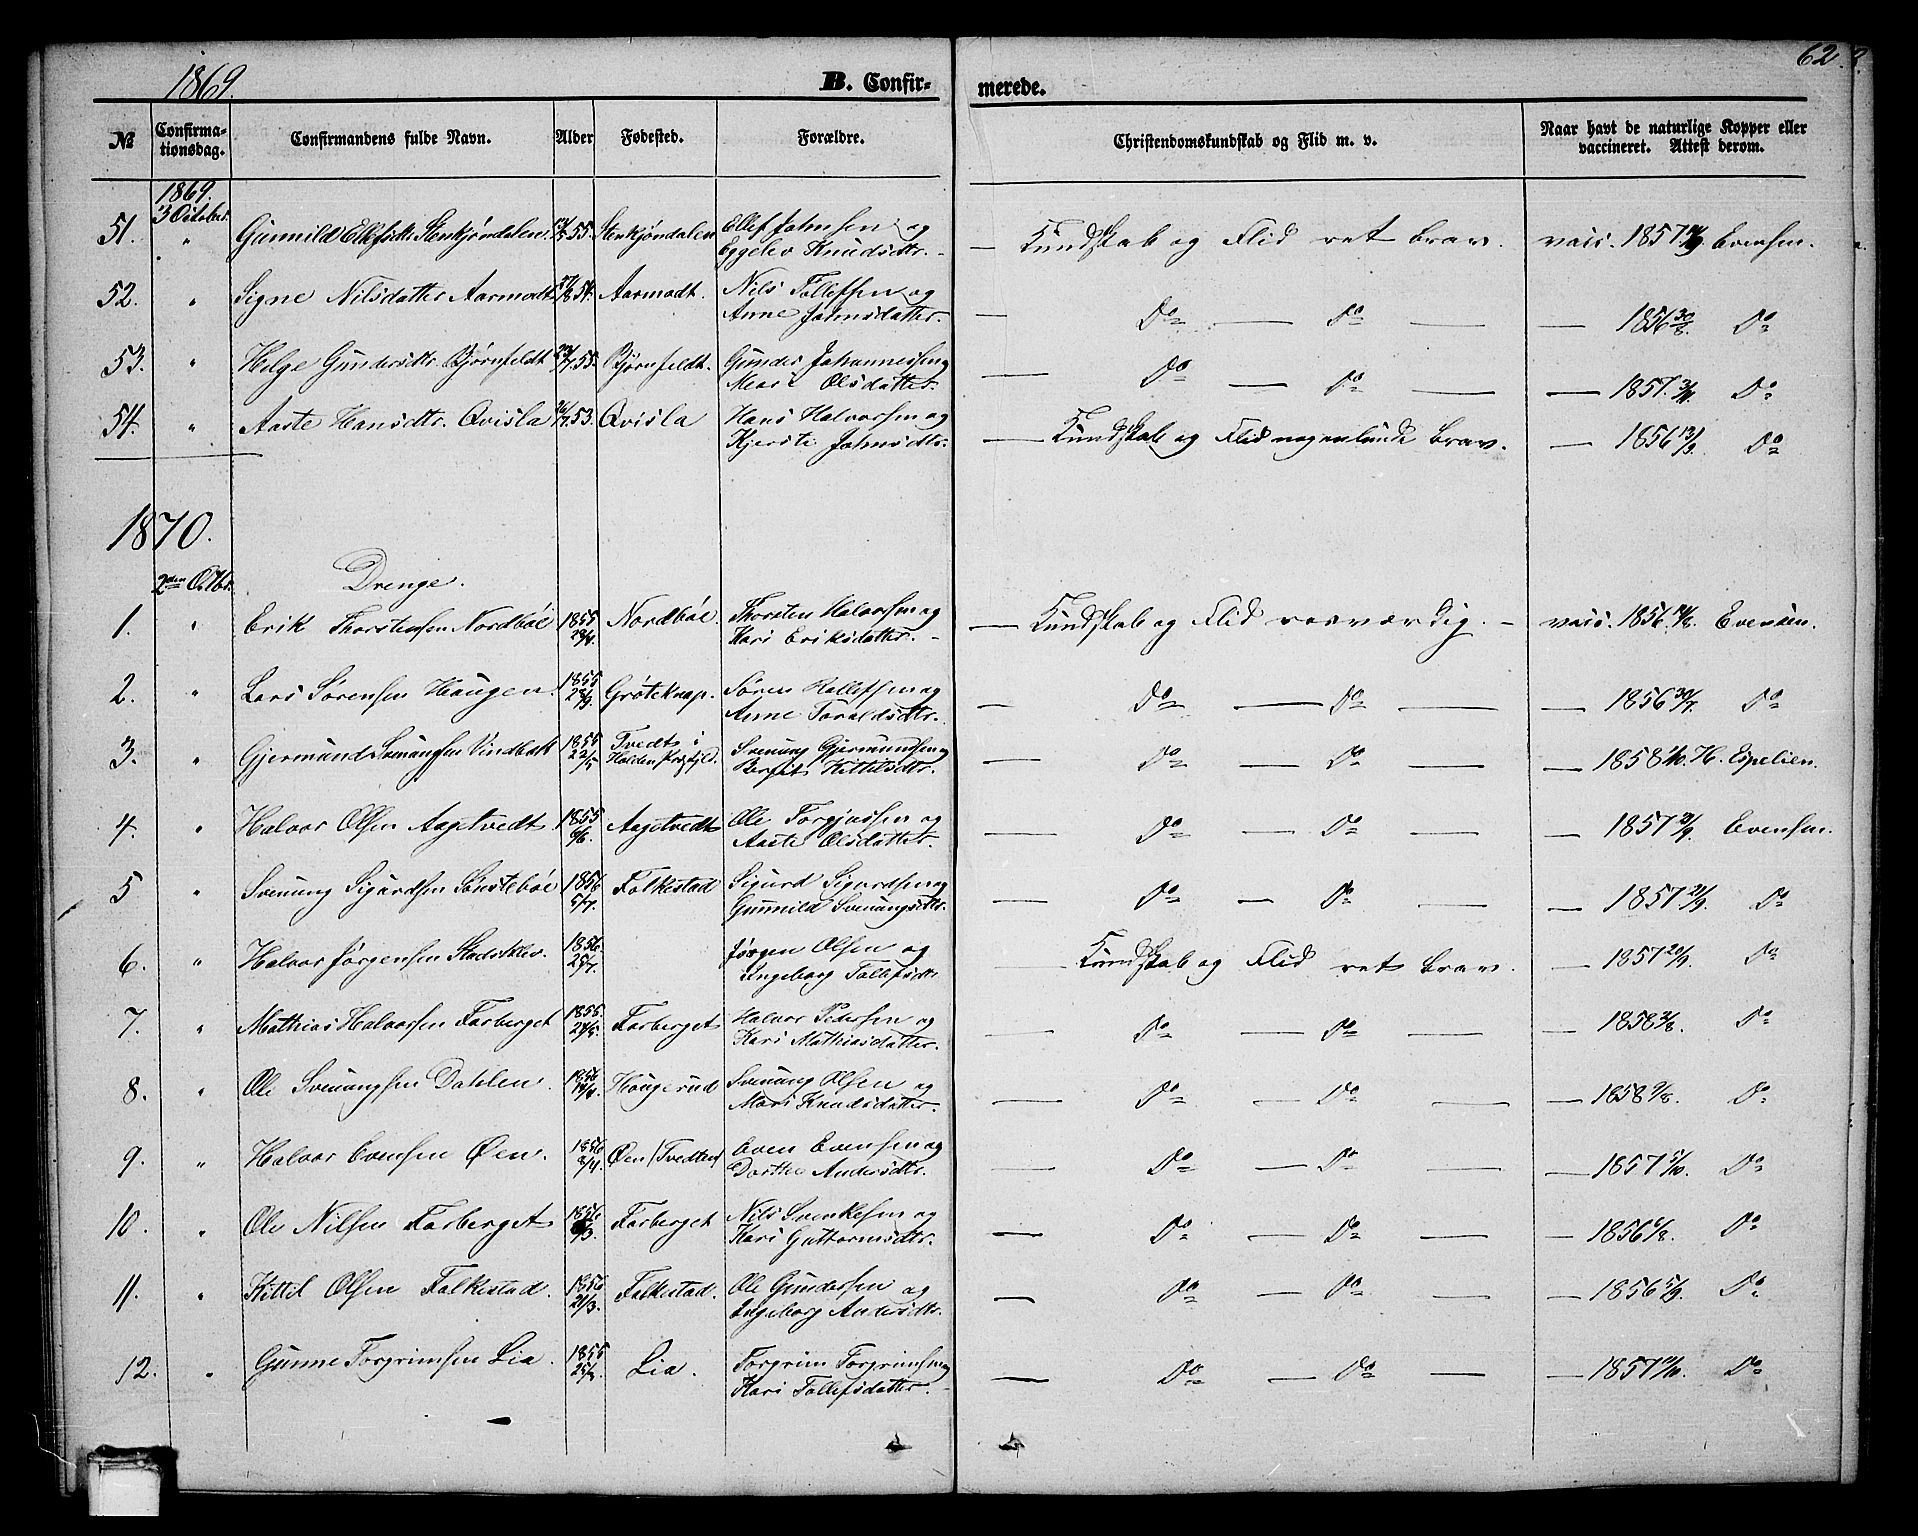 1869.
B. Confir-
merede.
62.
№
Confirma-
tionsdag.
Confirmandens fulde Navn.
Alder
Fødested.
Forældre.
Christendomskundskab og Flid m. v.
Naar havt de naturlige Kopper eller
vaccineret. Attest derom.
1869.
3 October.
51. " Gunnild Ellefsdtr. Stenkjøndalen. 55. Stenkjøndalen Ellef Johnsen og
Eggelev Knudsdtr. — Kundskab og Flid ret brav. vacc. 1857 Evensen.
52. " Signe Nilsdatter Aarmodt 54. Aarmodt. Nils Tollefsen og
Anne Johnsdatter. — Do — Do — — 1856 30/8. Do
53. " Helge Gundersdtr. Bjørnfeldt 55. Bjørnfeldt. Gunder Johannessen og
Mari Olsdatter. — Do — Do — — 1857. Do
54. " Aaste Hansdtr. Qvisla 53. Qvisla Hans Halvorsen og
Kjersti Johnsdtr. — Kundskab og Flid nogenlunde brav. — 1856 13/9. Do
1870.
2den Octbr. Drenge.
1. " Erik Thorstensen Nordbøe 1855 Nordbøe. Thorsten Halvorsen og
Kari Eriksdatter. — Kundskab og Flid rosværdig. — vacc. 1856. Evensen.
2. " Lars Sørensen Haugen. 1855 28/9. Grøteknap. Søren Hallefsen og
Anne Toraldsdtr. — Do — Do — — 1856 30/7. Do
3. " Gjermund Svenungsen Vindbæk 1855 22/5 Tvedts i
Holden Præstgjld. Svenung Gjermundsen og
Bergit Kittilsdtr. — Do — Do — — 1858 1/10. H. Espelien.
4. " Halvor Olsen Aagetvedt 1855 9/6. Aagetvedt Ole Torgjussen og
Aaste Olsdatter. — Do — Do — — 1857 21/9. Evensen.
5 " Svenung Sigurdsen Sønstebøe 1856 5/7. Folkestad Sigurd Sigurdsen og
Gunnild Svenungsdtr. — Do — Do — — 1857 21/9. Do
6. " Halvor Jørgensen Stadsklev. 1856. 25/7. Jørgen Olsen og
Ingeborg Tollefsdtr. — Kundskab og Flid ret brav. — 1857 20/9. Do
7. " Mathias Halvorsen Farberget 1855. 24/5. Farberget Halvor Pedersen og
Kari Mathiasdatter. — Do — Do — — 1858 2/8. Do
8. " Ole Svenungsen Dahlen. 1856 Haugerud Svenung Olsen og
Mari Knudsdatter. — Do — Do — — 1858 9/8. Do
9. " Halvor Evensen Øen. 1856 3/4. Øen (Tvedten) Even Evensen og
Dorthe Andersdtr. — Do — Do — — 1857 5/10. Do
10. " Ole Nilsen Farberget 1856 /3. Farberget Nils Svenkesen og
Kari Guttormsdtr. — Do — Do — — 1856 6/8. Do
11. " Kittil Olsen Folkestad. 1856 21/3. Folkestad. Ole Gundersen og
Ingeborg Andersdtr. — Do — Do — 1856 5/9. Do
12. " Gunne Torgrimsen Lia. 1855 Lia. Torgrim Torgrimsen og
Kari Tollefsdatter. — Do — Do — — 1857 Do